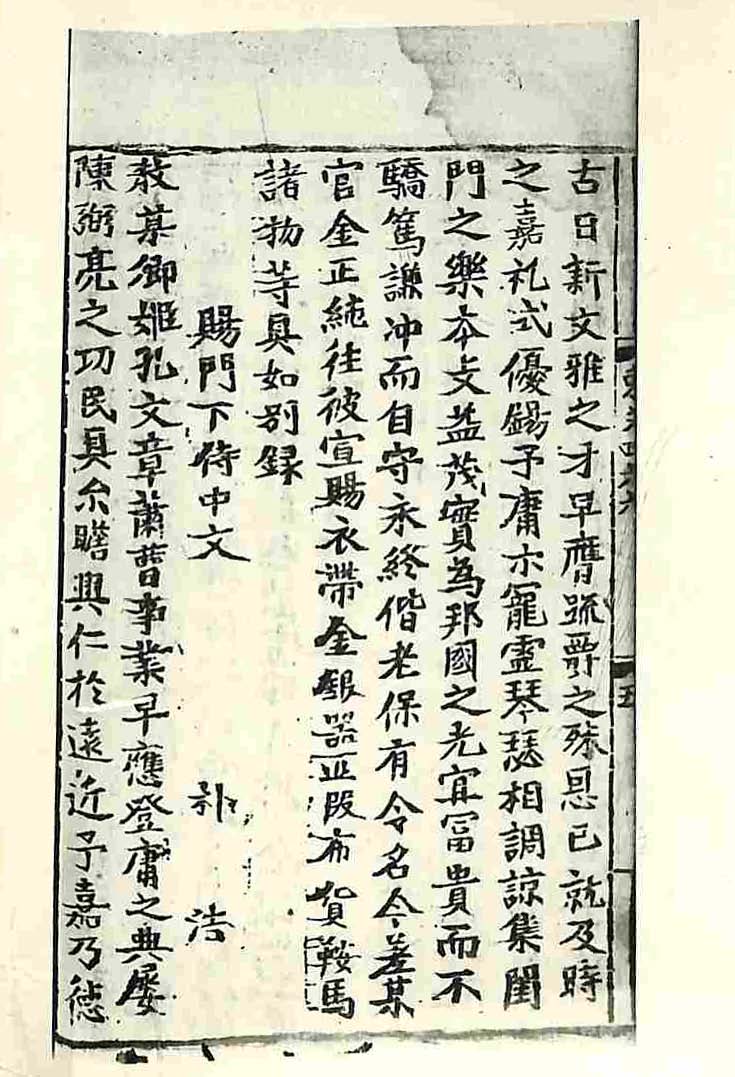 古日新文雅之才早膺疏爵之殊恩已就及時
之嘉礼式優錫予庸示寵靈琴瑟相調諒集閨
門之樂本支益茂實為邦國之光宜冨貴而不
驕篤謙冲而自守永終偕老保有令名今差某
官金正純往彼宣賜衣帶金銀器並段布貨鞍馬
諸物等具如別録
賜門下侍中文
浩
教某卿姬孔文章蕭曹事業早應登庸之典屡
陳弼亮之功民具尒瞻興仁於遠近予嘉乃德
五